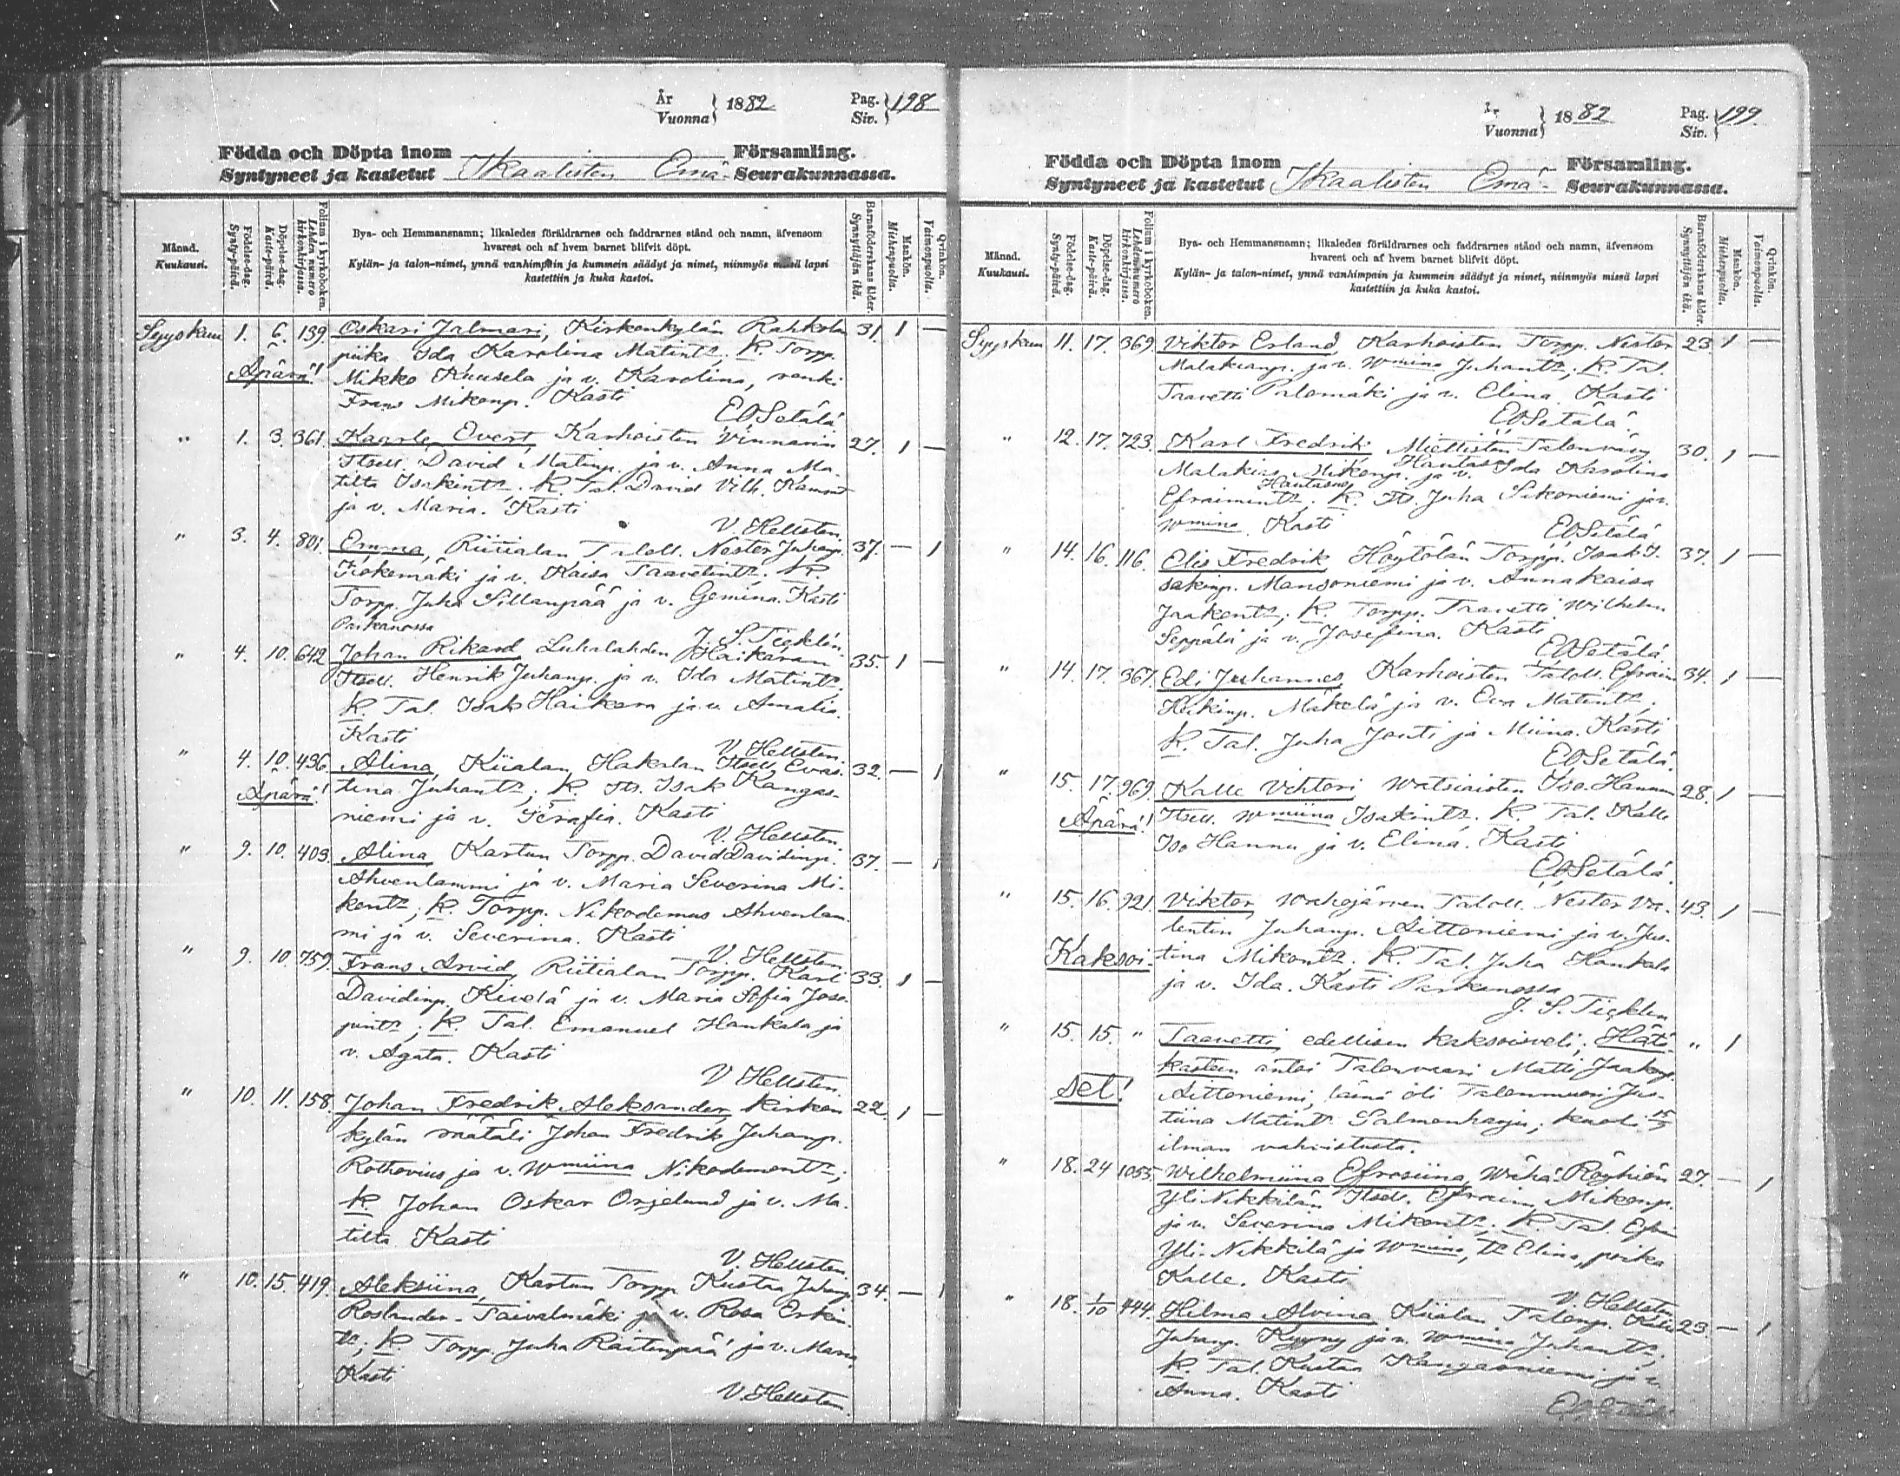 År
Vuonna } 1882 Pag.
Siv. } 198
Födda och Döpta inom Församling.
Syntyneet ja kastetut Ikaalisten Emä- Seurakunnassa.
Månad.
Kuukausi.
Födelse-dag.
Synty-päivä.
Döpelse-dag.
Kaste-päivä.
Folium i kyrkoboken.
Lehden numero kirkonkirjassa.
Bya- och Hemmansnamn; likaledes föräldrarnes och faddrarnes stånd och namn, äfvensom
hvarest och af hvem barnet blifvit döpt.
Kylän- ja talon-nimet, ynnä vanhimpain ja kummein säädyt ja nimet, niinmyös missä lapsi
kastettiin ja kuka kastoi.
Barnaföderskans ålder.
Synnyttäjän ikä.
Mankön.
Miehenpuolia.
Qvinkön.
Vaimonpuolia.
Syyskuu 1. 6. 139. Oskari Jalmari, Kirkonkylän Rahkola 31. 1 —
piika Ida Karolina Matint. K. Torpp.
Äpärä! Mikko Kuusela ja v. Karolina, renki
Frans Mikonp. Kasti
EOSetälä.
" 1. 3. 361. Kaarle Evert, Karhoisten Vinnarin 27. 1 —
Itsell. David Matinp. ja v. Anna Ma-
tilta Isakint. K. Tal. David Vilh.
ja v. Maria. Kasti
V. Hellsten.
" 3. 4. 801. Emma, Riitialan Taloll. Nestor Juhanp. 37. — 1
ja v. Kaisa Taavetint. K.
Torpp. Juha Sillanpää ja v. Gemina. Kasti
Parkanossa
J. S. Ticklén.
" 4. 10. 642. Johan Rikard, Luhalahden Haikaran 35. 1 —
Itsell. Henrik Juhanp. ja v. Ida Matint.
K. Tal. Isak Haikara ja v. Amalia.
Kasti
V. Hellsten.
" 4. 10. 436. Alina, Kiialan Hakalan Itsell. Evas- 32. — 1
Äpärä! tina Juhant.; K. Its. Isak Kangas-
niemi ja v. Serafia. Kasti
V. Hellsten.
" 9. 10. 403. Alina, Kartun Torpp. David Davidinp. 37. — 1
Ahvenlammi ja v. Maria Severina Mi-
kont.; K. Torpp. Nikodemus Ahvenlam-
mi ja v. Severina. Kasti
V. Hellsten.
" 9. 10. 759. Frans Arvid, Riitialan Torpp. Karl 33. 1 —
Davidinp. Kivelä ja v. Maria Sofia Jose-
pint.; K. Tal. Emanuel Hankala ja
v. Agata. Kasti
V Hellsten.
" 10. 11. 158. Johan Fredrik Aleksander, Kirkon- 22. 1 —
kylän räätäli Johan Fredrik Juhanp.
Rothovius ja v. Wmiina Nikodemont.;
K. Johan Oskar Orjelund ja v. Ma-
tilta. Kasti
V. Hellsten.
" 10. 15. 419. Aleksiina, Kartun Torpp. Kustaa Juhanp. 34. — 1
Roslander-Taivalmäki ja v. Rosa Erkin-
t.; K. Torpp. Juha Raitinpää ja v. Maria
Kasti
V. Hellsten.
År
Vuonna } 1882 Pag.
Siv. } 199.
Födda och Döpta inom Församling.
Syntyneet ja kastetut Ikaalisten Emä- Seurakunnassa.
Månad.
Kuukausi.
Födelse-dag.
Synty-päivä.
Döpelse-dag.
Kaste-päivä.
Folium i kyrkoboken.
Lehden numero kirkonkirjassa.
Bya- och Hemmansnamn; likaledes föräldrarnes och faddrarnes stånd och namn, äfvensom
hvarest och af hvem barnet blifvit döpt.
Kylän- ja talon-nimet, ynnä vanhimpain ja kummein säädyt ja nimet, niinmyös missä lapsi
kastettiin ja kuka kastoi.
Barnaföderskans ålder.
Synnyttäjän ikä.
Mankön.
Miehenpuolia.
Qvinkön.
Vaimonpuolia.
Syyskuu 11. 17. 369. Viktor Erland, Karhoisten Torpp. Nestor 23. 1 —
Malakianp. ja v. Wmiina Juhant.; K. Tal.
Taavetti Palomäki ja v. Elina. Kasti
EOSetälä.
" 12. 17. 723. Karl Fredrik, Miettisten Talonvävy 30. 1 —
Malakias Mikonp. Hautas ja v. Ida Karolina
Efraimint.; K. Its. Juha Sikoniemi ja v.
Wmiina. Kasti
EOSetälä
" 14. 16. 116. Elis Fredrik, Höytölän Torpp. Isak I-
sakinp. Mansoniemi ja v. Annakaisa 37. 1 —
Jaakont.; K. Torpp. Taavetti Wilhelm
Seppälä ja v. Josefina. Kasti
EOSetälä.
" 14. 17. 367. Edi Juhannes, Karhoisten Taloll. Efraim 34. 1 —
Heikinp. Mäkelä ja v. Eva Matint.;
K. Tal. Juha Jouti ja Miina. Kasti
EOSetälä.
" 15. 17. 969. Kalle Vihtori, Watsiaisten Iso-Hannu 28. 1 —
Äpärä! Itsell. Wmiina Isakint. K. Tal. Kalle
Iso Hannu ja v. Elina. Kasti
EOSetälä.
" 15. 16. 921. Viktor, Wahojärven Taloll. Nestor Va- 43. 1 —
lentin Juhanp. Aittoniemi ja v. Jus-
Kaksoi- tina Mikont. K. Tal. Juha Hankala
ja v. Ida. Kasti Parkanossa
J. S. Ticklén
" 15. 15. " Taavetti, edellisen kaksoisveli; Hätä- " 1
kasteen antoi Talonvaari Matti Jaakonp.
set! Aittoniemi, läsnä oli Talonmuori Jus-
tiina Matint. Salmenharju; kuoli 15/9
ilman vahvistusta.
" 18. 24 1055. Wilhelmiina Efrosiina, Wähä Röyhiön 27. — 1
Yli-Nikkilän Itsell. Efraim Mikonp.
ja v. Severina Mikont.; K. Tal. Efr.
Yli-Nikkilä ja Wmiina, t. Elina, poika
Kalle. Kasti
V. Hellsten
" 18. 1/10 444. Hilma Alvina, Kiialan Talonp. Kalle 23. — 1
Juhanp. Kyyny ja v. Wmiina Juhant.;
K. Tal. Kustaa Kangasniemi ja v.
Anna. Kasti
EOSetälä